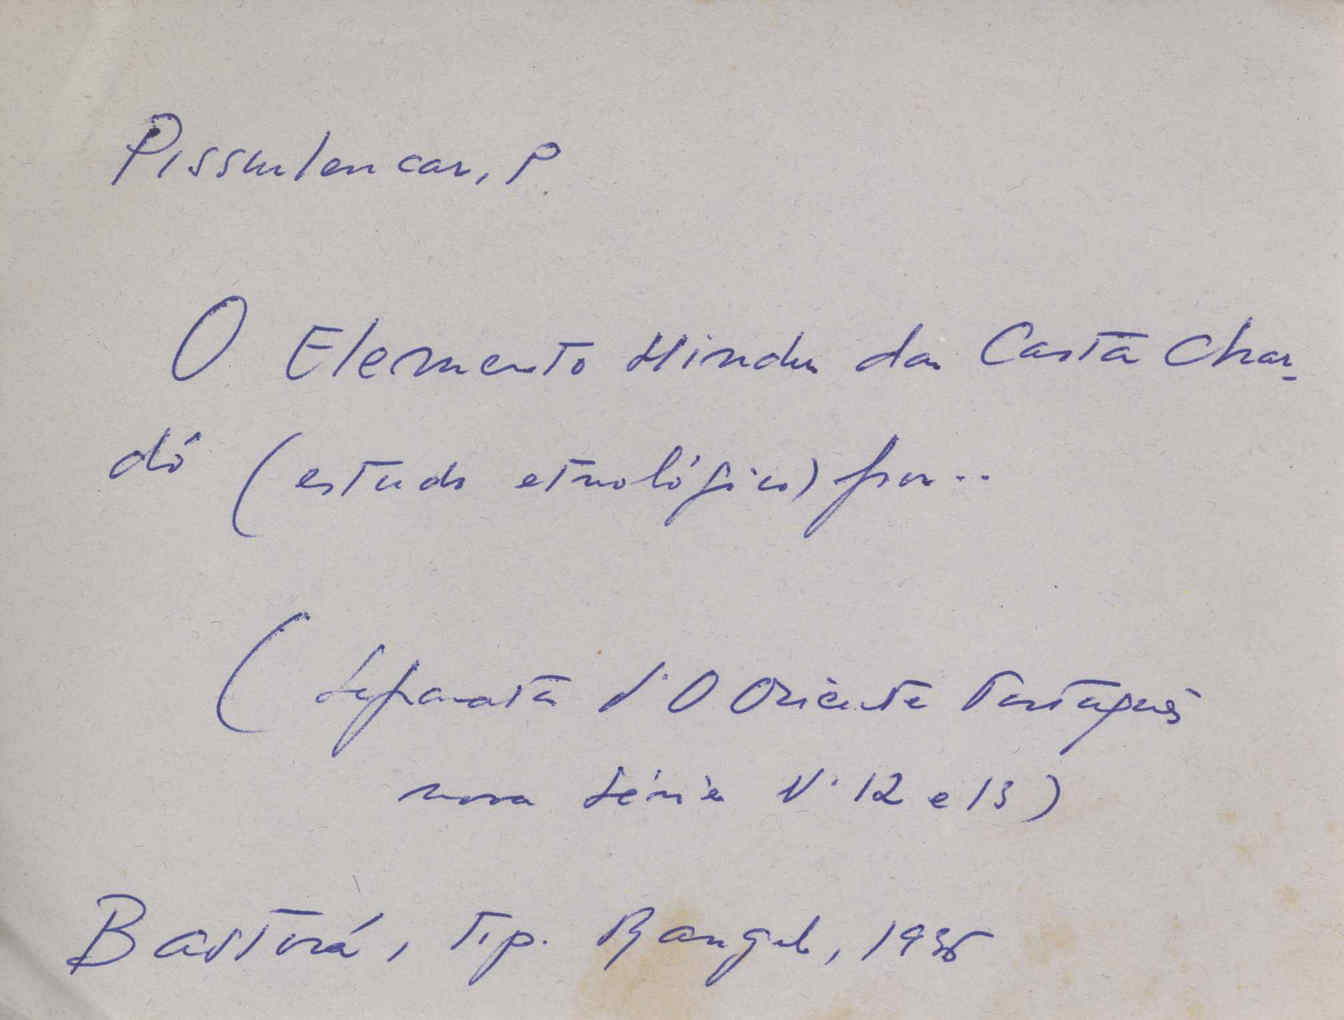 Pissurlencar, P.
O Elemento Hindu da Casta Char-
dó (estudo etnológico) por..
(Separata d'O Oriente Português
nova série N.º 12 e 13)
Bastorá, Tip. Rangel, 1936